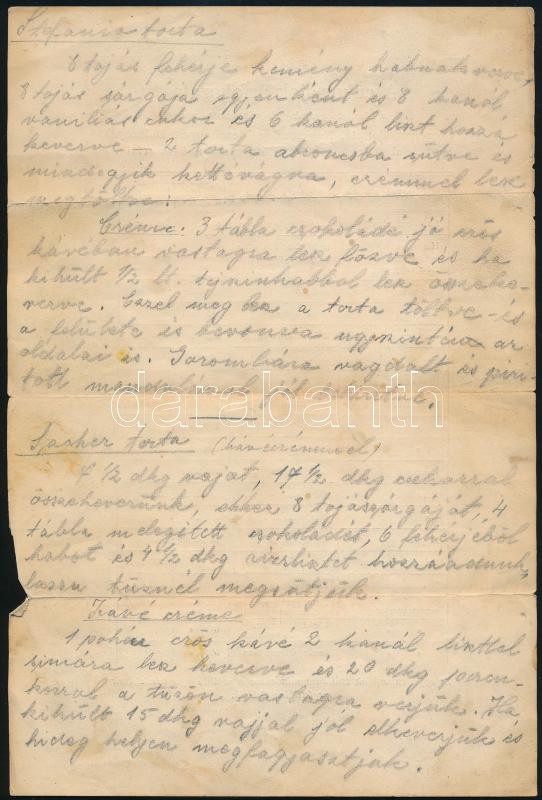 Stefania torta
6 tojás fehérje kemény habnak verve,
8 tojás sárgája egyenként és 8 kanál
vaniliás cukor és 6 kanál liszt hozzá
keverve – 2 torta abroncsba sütve és
mindegyik kettévágva, crémmel lesz
megtöltve:
Créme. 3 tábla csokoládé jó erős
kávéban vastagra lesz főzve és ha
kihült 1/2 lt. tejszinhabbol lesz össeke-
verve. Ezzel meg lesz a torta töltve – és
a felülete is bevonva ugyszintén az
oldalai is. Gorombára vagdalt és piri-
tott mandulával jól
darabanth
Sacher torta (kávécrémmel)
7 1/2 dkg vajat, 17 1/2 dkg cukorral
összekeverünk, ehhez 8 tojászárgáját, 4
tábla melegitett csokoládét, 6 fehérjéből
habot és 4 1/2 dkg rizslisztet hozzáadunk,
lassu tüznél megsütjük.
Kávé créme
1 pohár erős kávé 2 kanál liszttel
simára lesz keverve és 20 dkg poren-
korral a tüzön vastagra verjük. Ha
kihült 15 dkg vajjal jól elkeverjük és
hideg helyen megfagyasztjuk.